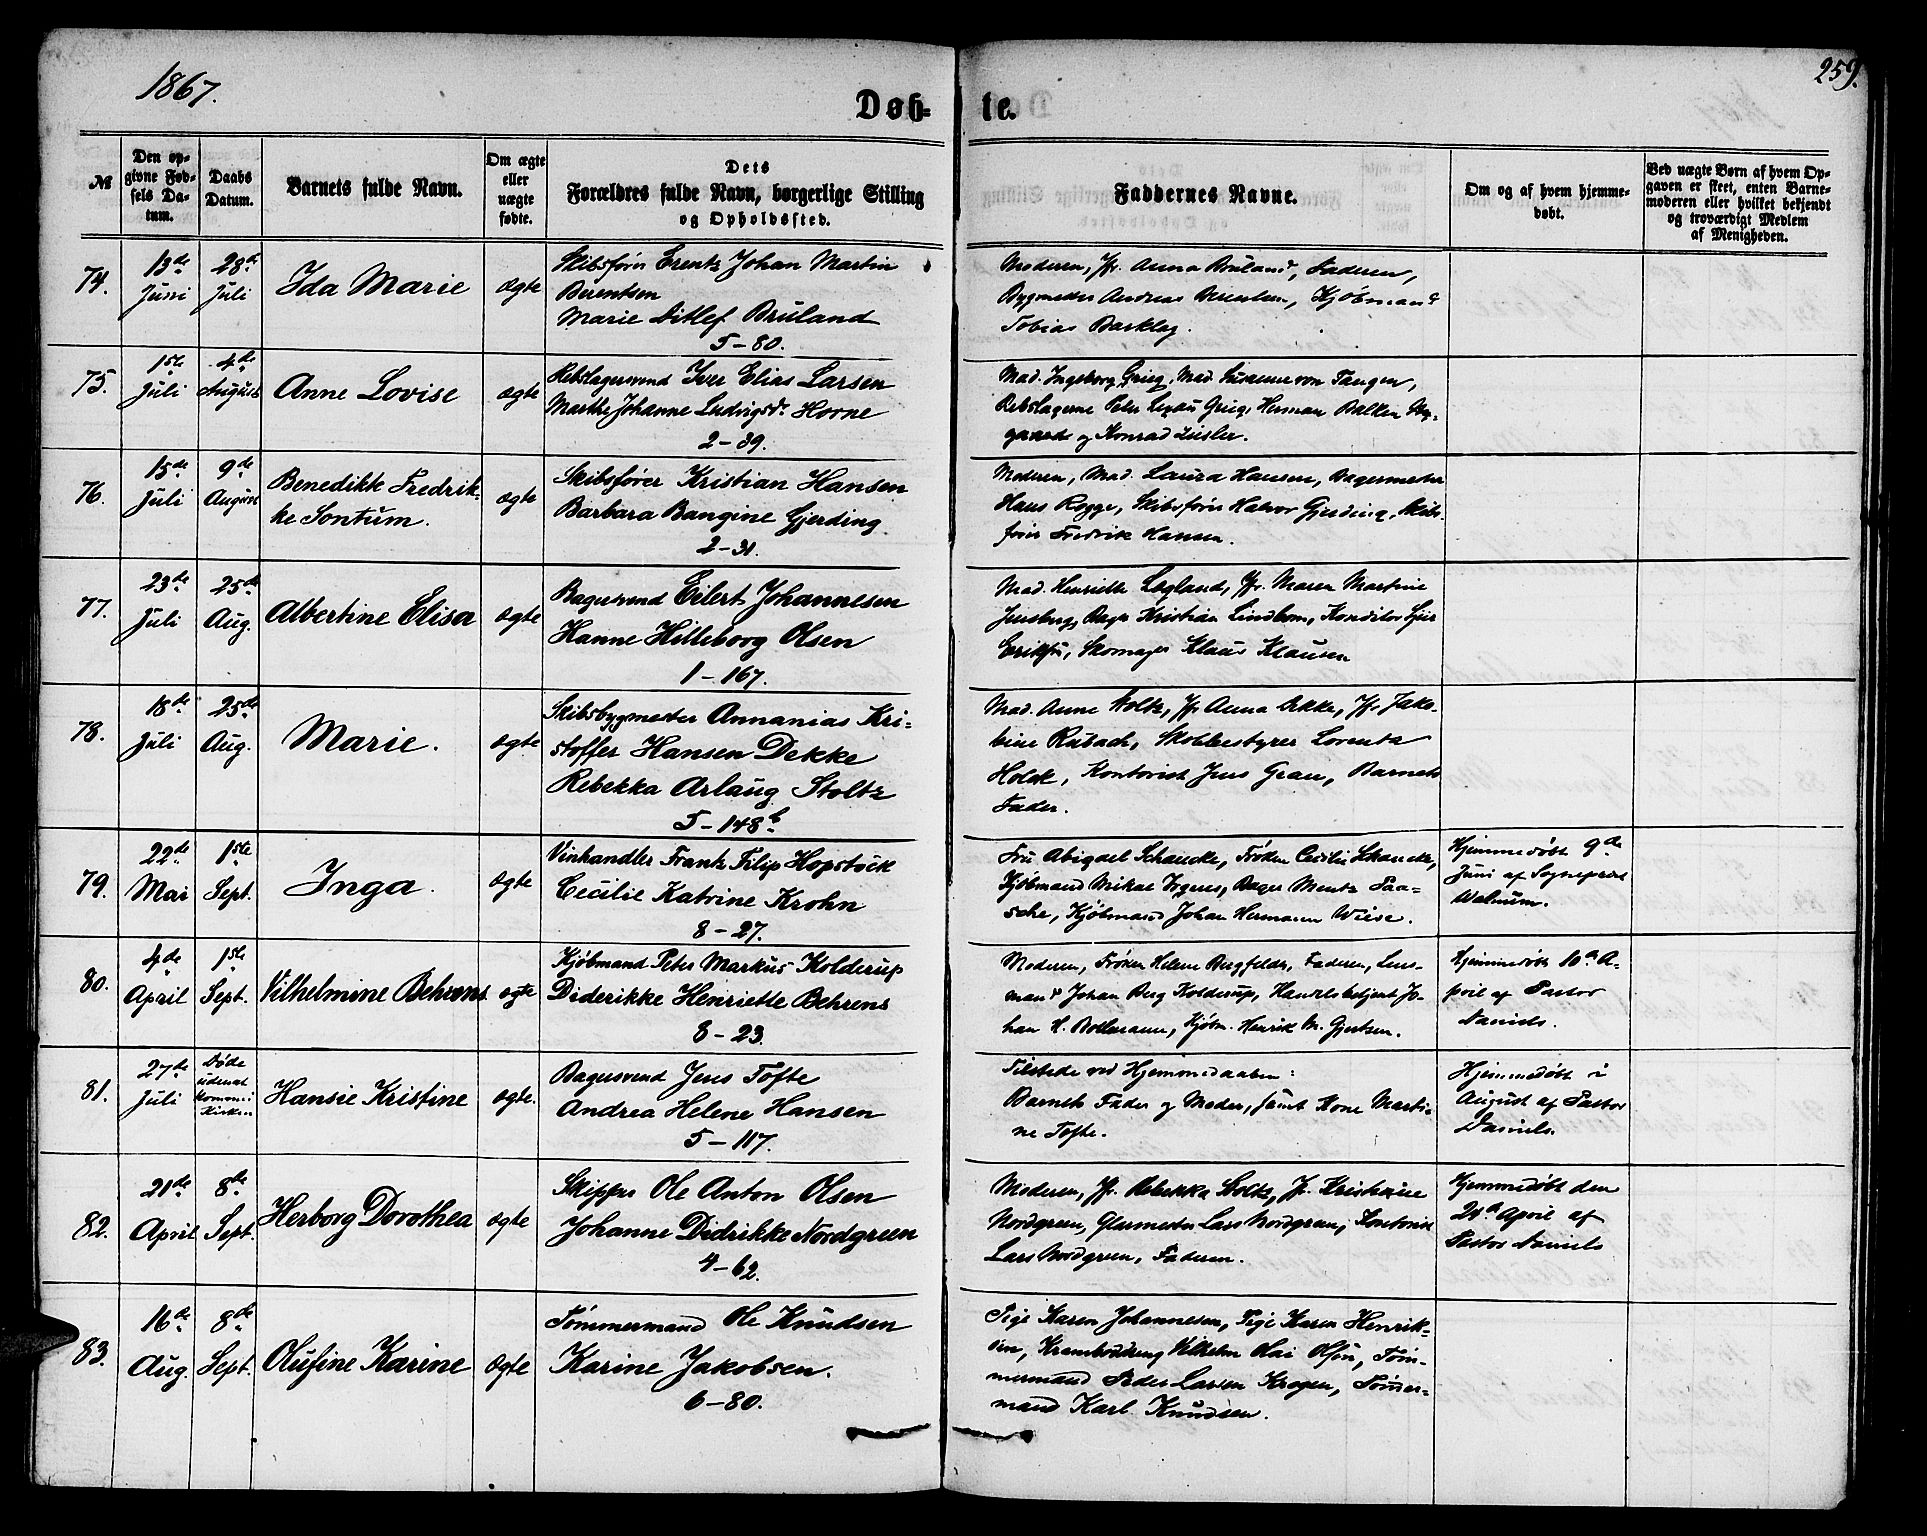 1867.
259.
Døb-te.
№
Den op-
givne Fød-
sels Da-
tum.
Daabs
Datum.
Barnets fulde Navn.
Om ægte
eller
uægte
fødte.
Dets
Forældres fulde Navn, borgerlige Stilling
og Opholdssted.
Faddernes Navne.
Om og af hvem hjemme-
døbt.
Ved uægte Børn af hvem Op-
gaven er skeet, enten Barne-
moderen eller hvilket bekjendt
og troværdigt Medlem
af Menigheden.
74.
13de
Juni
28de
Juli
Ida Marie
Ægte
Skibsfører Erentz Johan Martin
Berentsen
Marie Ditlef Bruland
5-80.
Moderen, Jfr. Anna Bruland, Faderen,
Bygmester Andreas Berentsen, Kjøbmand
Tobias Barkley.
75.
1ste
Juli
4de
August
Anne Lovise
Ægte
Rebslagersvend Iver Elias Larsen
Marthe Johanne Ludvigsdr. Horne
2-39.
Mad. Ingeborg Grieg, Mad. Susanne von Tangen,
Rebslagerne Peter Grieg, Herman Balken
og Konrad
76.
15de
Juli
9de
August
Benedikke Fredrik-
ke Sontum.
Ægte
Skibsfører Kristian Hansen
Barbara Bangine Gjerding
2-31.
Moderen, Mad. Laura Hansen, Bagermester
Hans Rogge, Skibsfører Halvor Gjerding, Skibs-
fører Fredrik Hansen.
77.
23de
Juli
25de
Aug.
Albertine Elisa
Ægte
Bagersvend Eilert Johannesen
Hanne Hilleborg Olsen
1-167.
Mad. Henriette Legland, Jfr. Maren Martine
Jensberg, Bager Kristian Lindbom, Konditor
Skomager Klaus Klausen
78.
18de
Juli
25de
Aug.
Marie.
Ægte
Skibsbygmester Annanias Kri-
stoffer Hansen Dekke
Rebekka Arlaug Stoltz
5-148b
Mad. Anne Stoltz, Jfr. Anna Dekke, Jfr. Jako-
bine Rubach, Skolebestyrer Lorentz
Holck, Kontorist Jens Gran, Barnets
Fader.
79.
22de
Mai
1ste
Sept.
Inga.
Ægte
Vinhandler Frantz Filip Hopstock
Cecilie Katrine Krohn
8-27.
Fru Abigael Schancke, Frøken Cecilie Schancke,
Kjøbmand Mikal Irgens, Bager Mentz Paa-
sche, Kjøbmand Johan Hermann Wiese.
Hjemmedøbt 9de
Juni af Sognepræst
Walnum.
80.
4de
April
1ste
Sept.
Vilhelmine Behrens
Ægte
Kjøbmand Peter Markus Kolderup
Diderikke Henriette Behrens
8-23.
Moderen, Frøken Helene Bergfeldt, Faderen, Lens-
mand Johan Berg Kolderup, Handelsbetjent Jo-
han H. Kjøbm. Henrik M. Gjertsen.
Hjemmedøbt 10de A-
pril af Pastor
Daniels.
81.
27de
Juli
Døde
uden at
komme i
Kirken
Hansie Kristine
Ægte.
Bagersvend Jens Tofte
Andrea Helene Hansen
5-117.
Tilstede ved Hjemmedaaben:
Barnets Fader og Moder, samt Kone Marti-
ne Tofte.
Hjemmedøbt i
August af Pastor
Daniels.
82.
21de
April
8de
Sept.
Herborg Dorothea
Ægte
Skipper Ole Anton Olsen
Johanne Didrikke Nordgreen
4-62.
Moderen, Jfr. Rebekka Stoltz, Jfr. Kristiane
Nordgreen, Glarmester Lars Nordgreen, Kontorist
Lars Nordgreen, Faderen.
Hjemmedøbt den
24de April af
Pastor Daniels
83.
16de
Aug.
8de
Sept.
Olufine Karine
Ægte
Tømmermand Ole Knudsen
Karine Jakobsen.
6-80.
Pige Karen Johannesen, Pige Karen Henrik-
sen, Kramboddreng Vilhelm Olai Olsen, Tøm-
mermand Peder Larsen Krogen, Tømmer-
mand Karl Knudsen.